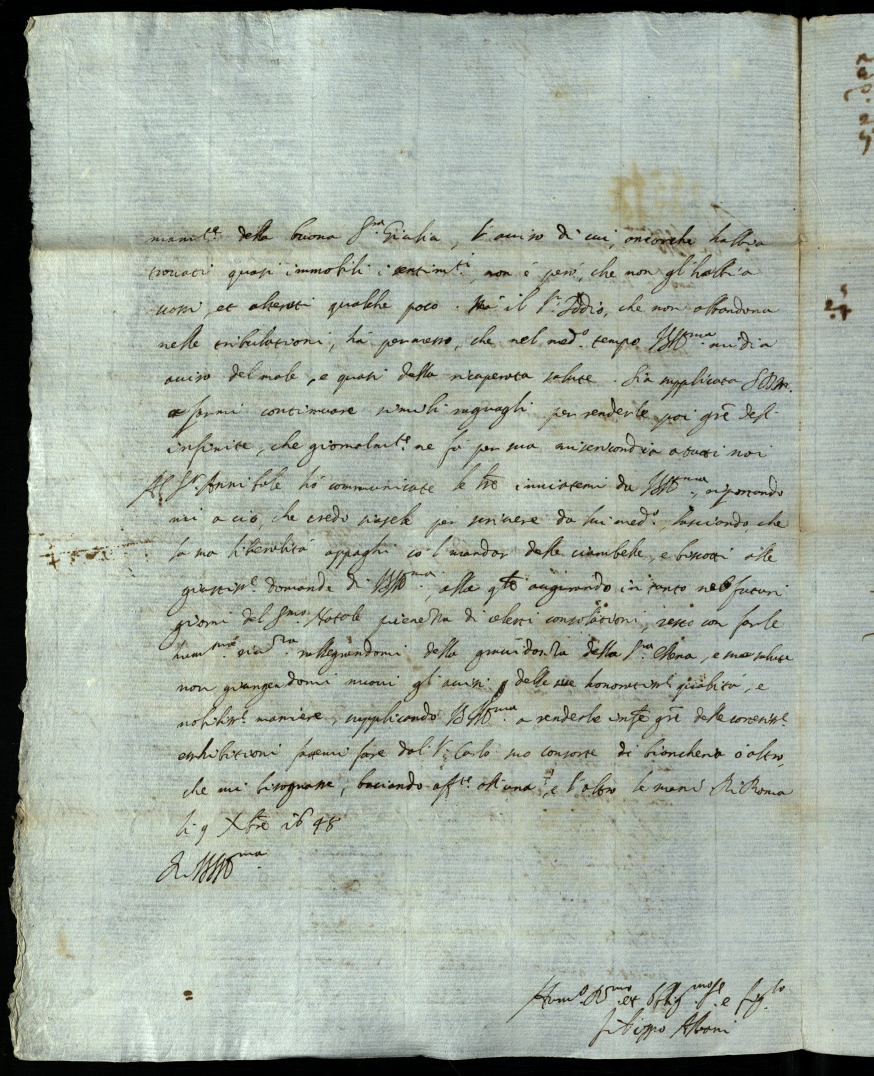 manit.e della buona S.ra Giulia, l'aviso di cui, ancorche habbia
trovati quasi immobili i sentim.ti, non è però, che non gl'habbia
mossi, et alterati qualche poco. Mà il S.r Iddio, che non abbandona
nelle tribulationi, hà permesso, che nel med.o tempo VSIll.ma mi dia
aviso del male, e quasi della ricuperata salute. Sia supplicata S.D.M.
a farmi continuare simili ragguagli per renderle poi grẽ dell
infinite, che giornalm.te ne fà per sua misericordia a tutti noi
Al S.r Annibale hò communicate le lrẽ inviatemi da VSIll.ma, riportando
mi a ciò, che credo per scrivere da lui med.o, lasciando, che
la sua liberalità appaghi cõ l'mandar delle ciambelle, e biscotti alle
giustiss.e domande di VSIll.ma, alla q̃le augurando in tanto nelli futuri
giorni del S.mo Natale pienezza di celesti consolationi, resto con farle
hum.ma riv.za rallegrandomi della gravidanza della S.ra Elena, e sua salute
non giungendomi nuovi gl'avisi delle sue honoratiss.e qualità, e
nobiliss.e maniere, supplicando VSIll.ma a renderle infte grẽ delle cortesiss.e
esshibitioni fattemi fare dal S.r Carlo suo consorte di biancheria ò altro,
che mi bisognasse, baciando aff.te all'una, e l'altro le mani Di Roma
li 9 Xbre 1648
Di VSIll.ma
Hum.o D.mo et Oblig.mo S.e e fig.lo
Filippo Albani